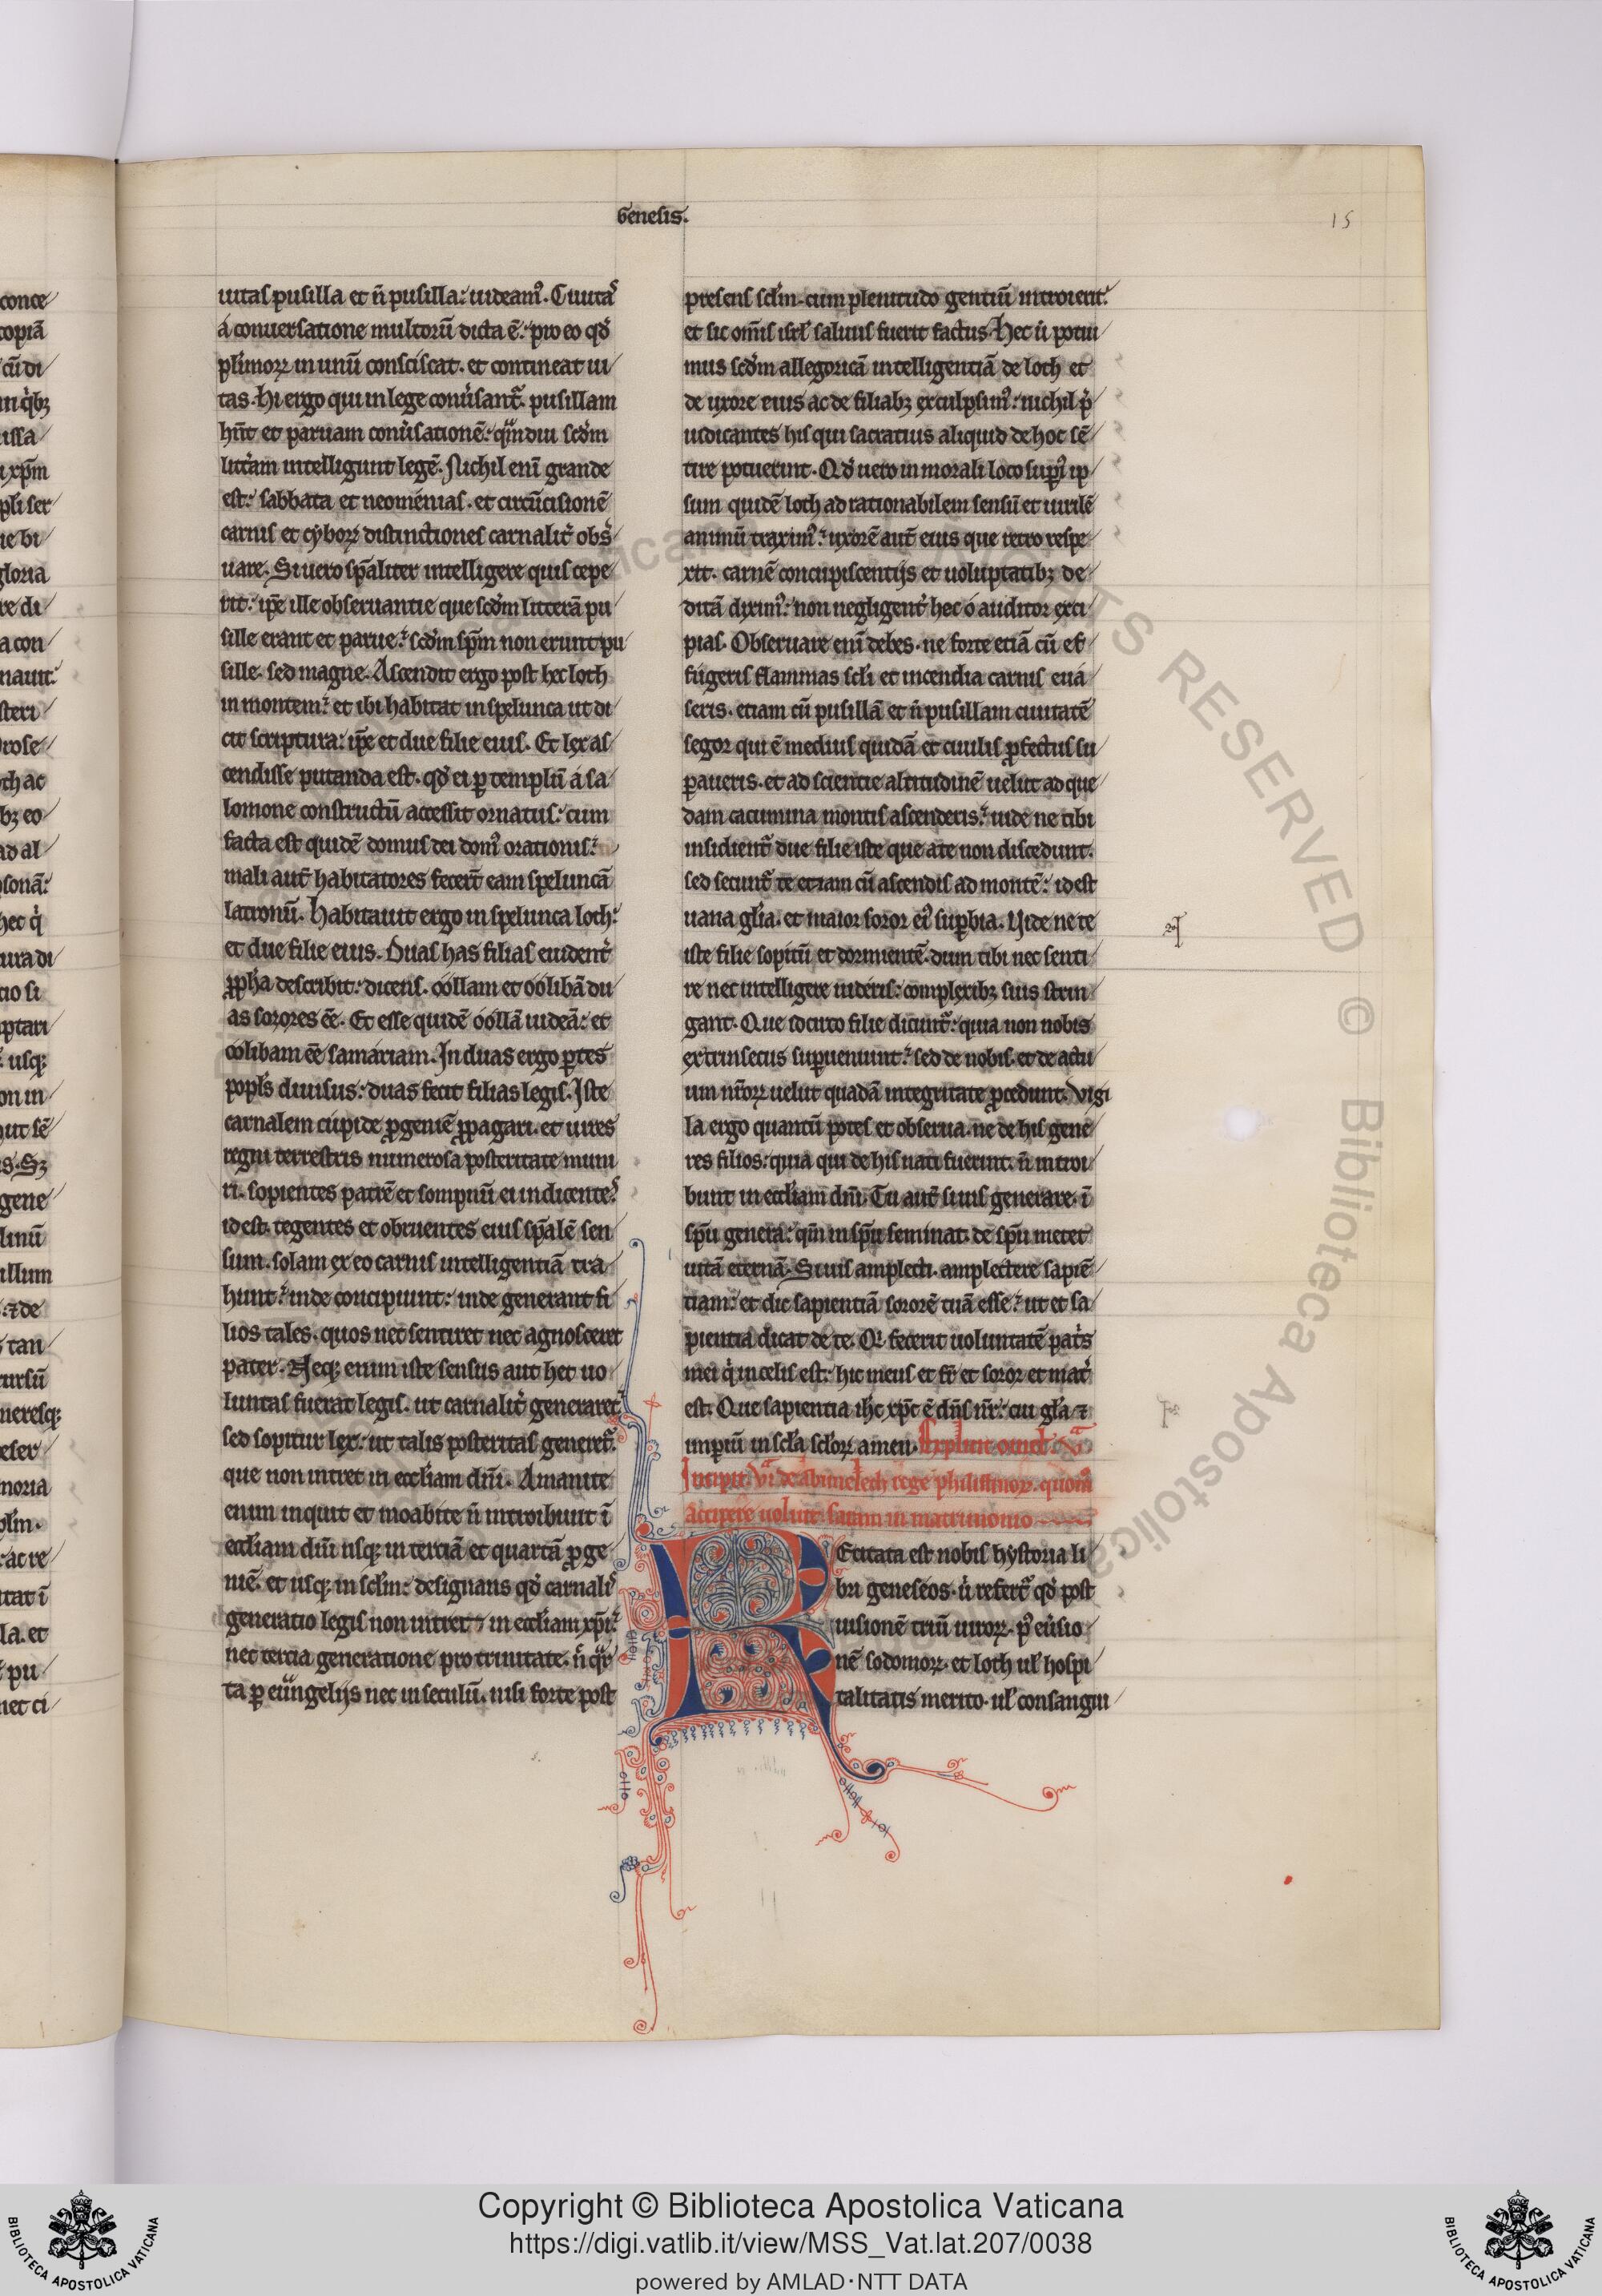 Genesis.
15
uitas pusilla et n̄ pusilla: uideam᷒. Ciuita᷒
a conuersatione multorū dicta ē: pro eo qđ
plimoꝝ in unū consciscat. et contineat ui
tas. Hi ergo qui in lege conu̾sant᷑. pusillam
hn̄t et paruam conu̾sationē: qͣmdiu scđm
litt̾am intelligunt legē. Nichil eni grande
est: sabbata et neomenias. et circūcisionē
carnis et cyboꝝ distinctiones carnalit̾ obs̾
uare. Si uero sp̄aliter intelligere quis cepe
rit: ip̄e ille obseruantie que scđm litterā pu
sille erant et parue: scđm sp̄m non erunt pu
sille. sed magne. Ascendit ergo post hec loth
in montem: et ibi habitat in spelunca ut di
cit scriptura: ip̄e et due filie eius. Et lex as
cendisse putanda est. qđ ei ꝑ templū a sa
lomone constructū accessit ornatus: cum
facta est quidē domus dei dom᷒ orationis:
mali aut̄ habitatores fecert̄ eam speluncā
latronū. Habitauit ergo in spelunca loth:
et due filie eius. Duas has filias euident̾
ꝓph̄a describit: dicens. oollam et oolibā du
as sorores ēē. Et esse quidē oollā iudeā: et
oolibam ēē samariam. In duas ergo ꝑtes
popl̄s diuisus: duas fecit filias legis. Iste
carnalem cupide ꝓgeniē ꝓpagari. et uires
regni terrestris numerosa posteritate muni
ri. sopientes patrē et sompnū ei indicente᷒
id est. tegentes et obruentes eius sp̄alē sen
sum. solam ex eo carnis intelligentiā tra
hunt: inde concipiunt: inde generant fi
lios tales. quos nec sentiret nec agnosceret
pater. Neq; enim iste sensus aut hec uo
luntas fuerat legis. ut carnalit̾ generaret
sed sopitur lex: ut talis posteritas generet᷑.
que non intret in eccl̄iam dn̄i. Amanite
enim inquit et moabite n̄ introibunt ī
eccl̄iam dn̄i usq; in terciā et quartā ꝓge
niē. et usq; in sc̄lm: designans qđ carnali᷒
generatio legis non intret in eccl̄iam xp̄i:
nec tercia generatione pro trinitate. n̄ qͣr
ta ꝑ euͣngelijs nec in seculū. nisi forte post
presens sc̄lm. cum plenitudo gentiū introierit:
et sic om̄is isrl̄ saluus fuerit factus. Hec ū potui
mus scđm allegoricā intelligentiā de loth et
de uxore eius ac de filiabꝫ exculpsim᷒: nichil p̾
iudicantes his qui sacratius aliquid de hoc sē
tire potuerunt. Qđ uero in morali loco supi᷒ ip
sum quidē loth ad rationabilem sensū et uirilē
animū traxim᷒: uxorē aut̄ eius que retro respe
xit. carnē concupiscentijs et uoluptatibꝫ de
ditā dixim᷒: non negligent̾ hec o auditor exci
pias. Obseruare eni debes. ne forte etiā cū ef
fugeris flammas sc̄li et incendia carnis eua
seris. etiam cū pusillā et n̄ pusillam ciuitatē
segor qui ē medius quidā et ciuilis ꝓfectus su
ꝑaueris. et ad scientie altitudinē uelut ad que
dam cacumina montis ascenderis: uide ne tibi
insidient᷑ due filie iste que a te non discedunt.
sed secunt᷑ te etiam cū ascendis ad montē: id est
uana gl̄ia. et maior soror ei᷒ suꝑbia. Uide ne te
iste filie sopitū et dormientē. dum tibi nec senti
re nec intelligere uideris: complexibꝫ suis strin
gant. Que idcirco filie dicunt᷑: quia non nobis
extrinsecus suꝑueniunt: sed de nobis. et de actu
um nr̄oꝝ uelut quadā integritate ꝓcedunt. Vigi
la ergo quantū potes et obserua. ne de his gene
res filios: quia qui de his nati fuerint. n̄ introi
bunt in eccl̄iam dn̄i. Tu aut̄ si uis generare. ī
sp̄u genera: qm̄ in sp̄u seminat. de sp̄u metet
uitā eternā. Si uis amplecti. amplectere sapiē
tiam: et dic sapientiā sororē tuā esse: ut et sa
pientia dicat de te. Qͥ fecerit uoluntatē pat̾s
mei qͥ in celis est: hic meus et fr̄ et soror et mat̾
est. Que sapientia ih̄c xp̄c ē dn̄s nr̄: cui gl̄a ⁊
imꝑiū in sc̄la sc̄loꝝ amen. Explicit omel̄. Vᵃ
Incipit. VIᵃ de abimelech rege philistinoꝝ. quom᷒
accipere uoluit saram in matrimonio
REcitata est nobis hystoria li
bri geneseos. ū refert᷑ qđ post
uisionē triū uiroꝝ. p᷒ eu̾sio
nē sodomoꝝ. et loth ul̄ hospi
talitatis merito. ul̄ consangui
RIGHTS RESERVED © Biblioteca Apostolica Vaticana
Copyright © Biblioteca Apostolica Vaticana
https://digi.vatlib.it/view/MSS_Vat.lat.207/0038
powered by AMLAD·NTT DATA
BIBLIOTECA APOSTOLICA VATICANA
BIBLIOTECA APOSTOLICA VATICANA